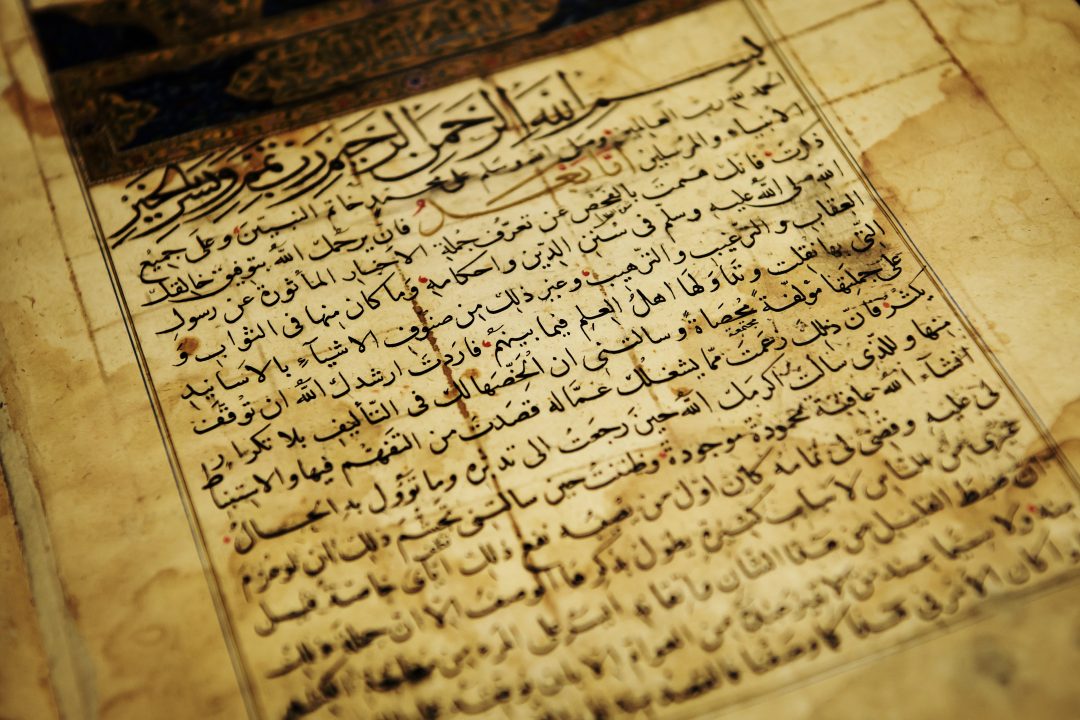 بسم الله الرحمن الرحيم رب تمم ويسر بخير
الحمد لله رب العالمين وصلى الله وسلم على محمد خاتم النبيين وعلى جميع
الانبياء والمرسلين اما بعد فان يرحمك الله بتوفيق خالقك
ذكرت انك هممت بالفحص عن تعرف جملة الاخبار المأثورة عن رسول
الله صلى الله عليه وسلم في سنن الدين واحكامه وما كان منها في الثواب و
العقاب والترغيب والترهيب وغير ذلك من صنوف الاشياء بالاسانيد
التي بها نقلت وتداولها اهل العلم فيما بينهم فاردت ارشدك الله ان توقف
على جملتها مؤلفة محصاة وسالتني ان الخصها لك في التأليف بلا تكرار
يكثر فان ذلك زعمت مما يشغلك عما له قصدت من التفهم فيها والاستنباط
منها وللذي سالت اكرمك الله حين رجعت الى تدبره وما تؤول به الحال
ان شاء الله عاقبة محمودة موجودة وظننت حين سالتني تجشم ذلك ان لو عزم
لي عليه وقضي لي تمامه كان اول من يصيبه نفع ذلك اياي خاصة قبل
غيري من الناس لاسباب كثيرة يطول بذكرها الوصف الا ان جملة ذلك
ان ضبط القليل من هذا الشان واتقانه ايسر على المرء من معالجة الكثير
منه ولا سيما عند من لا تمييز عنده من العوام الا بان